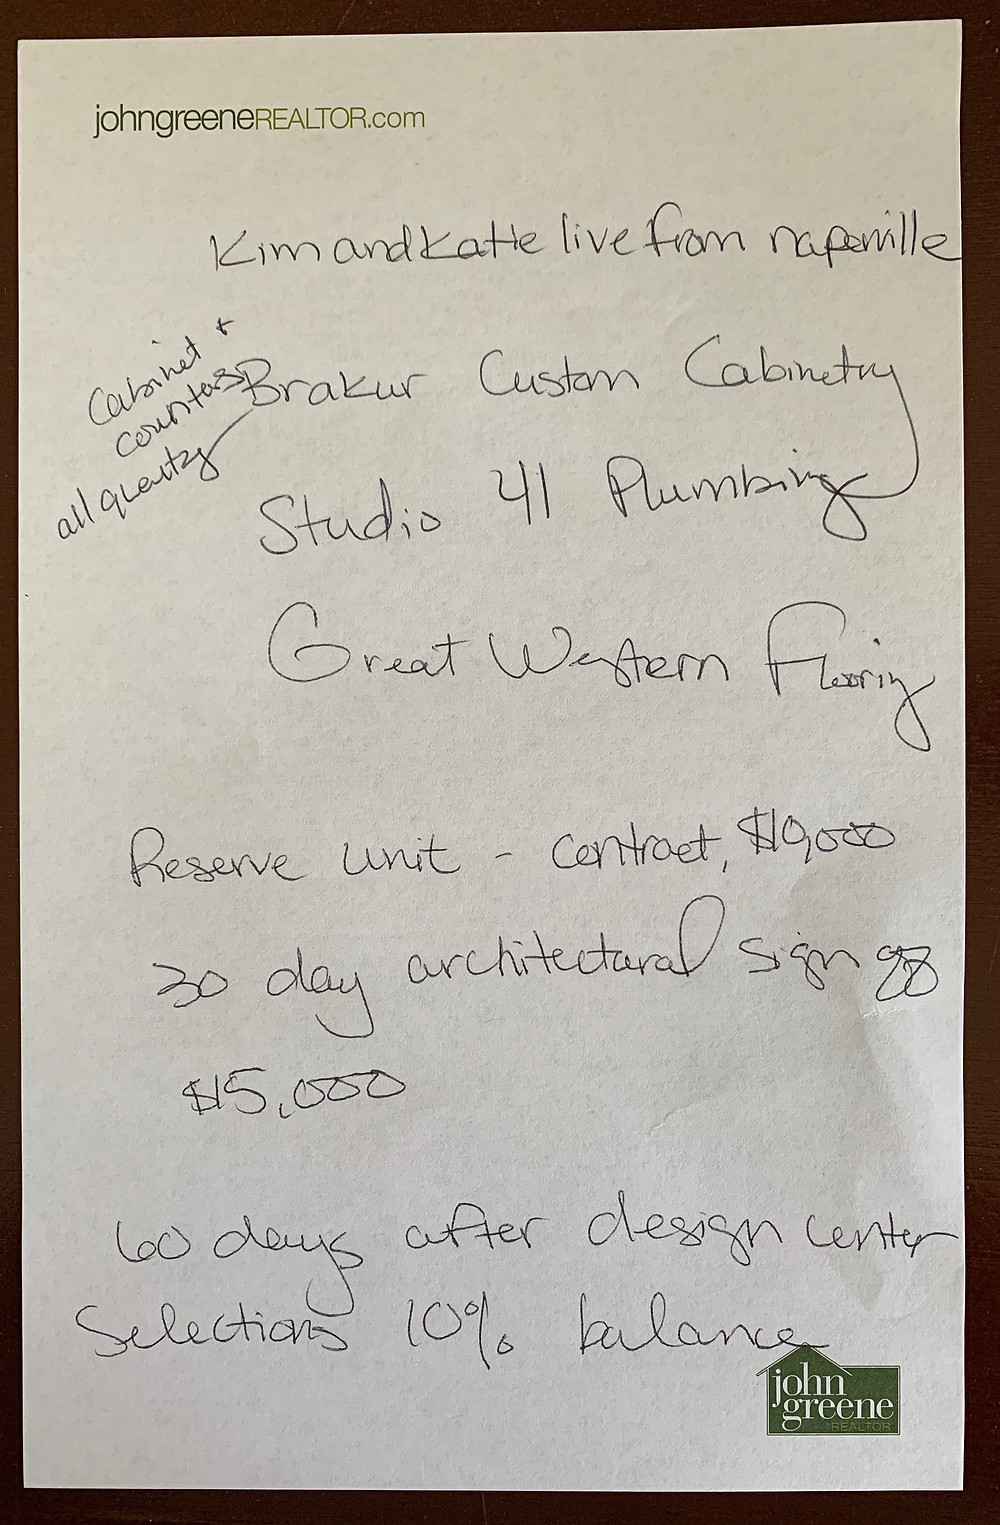 johngreeneREALTOR.com
Kim and Katie live from naperville
Cabinet +
counters
all quartz
Brakur Custom Cabinetry
Studio 41 Plumbing
Great Western Flooring
Reserve unit - contract, $10,000
30 day architectural sign off
$15,000
60 days after design center
Selections 10% balance
john
greene
REALTOR